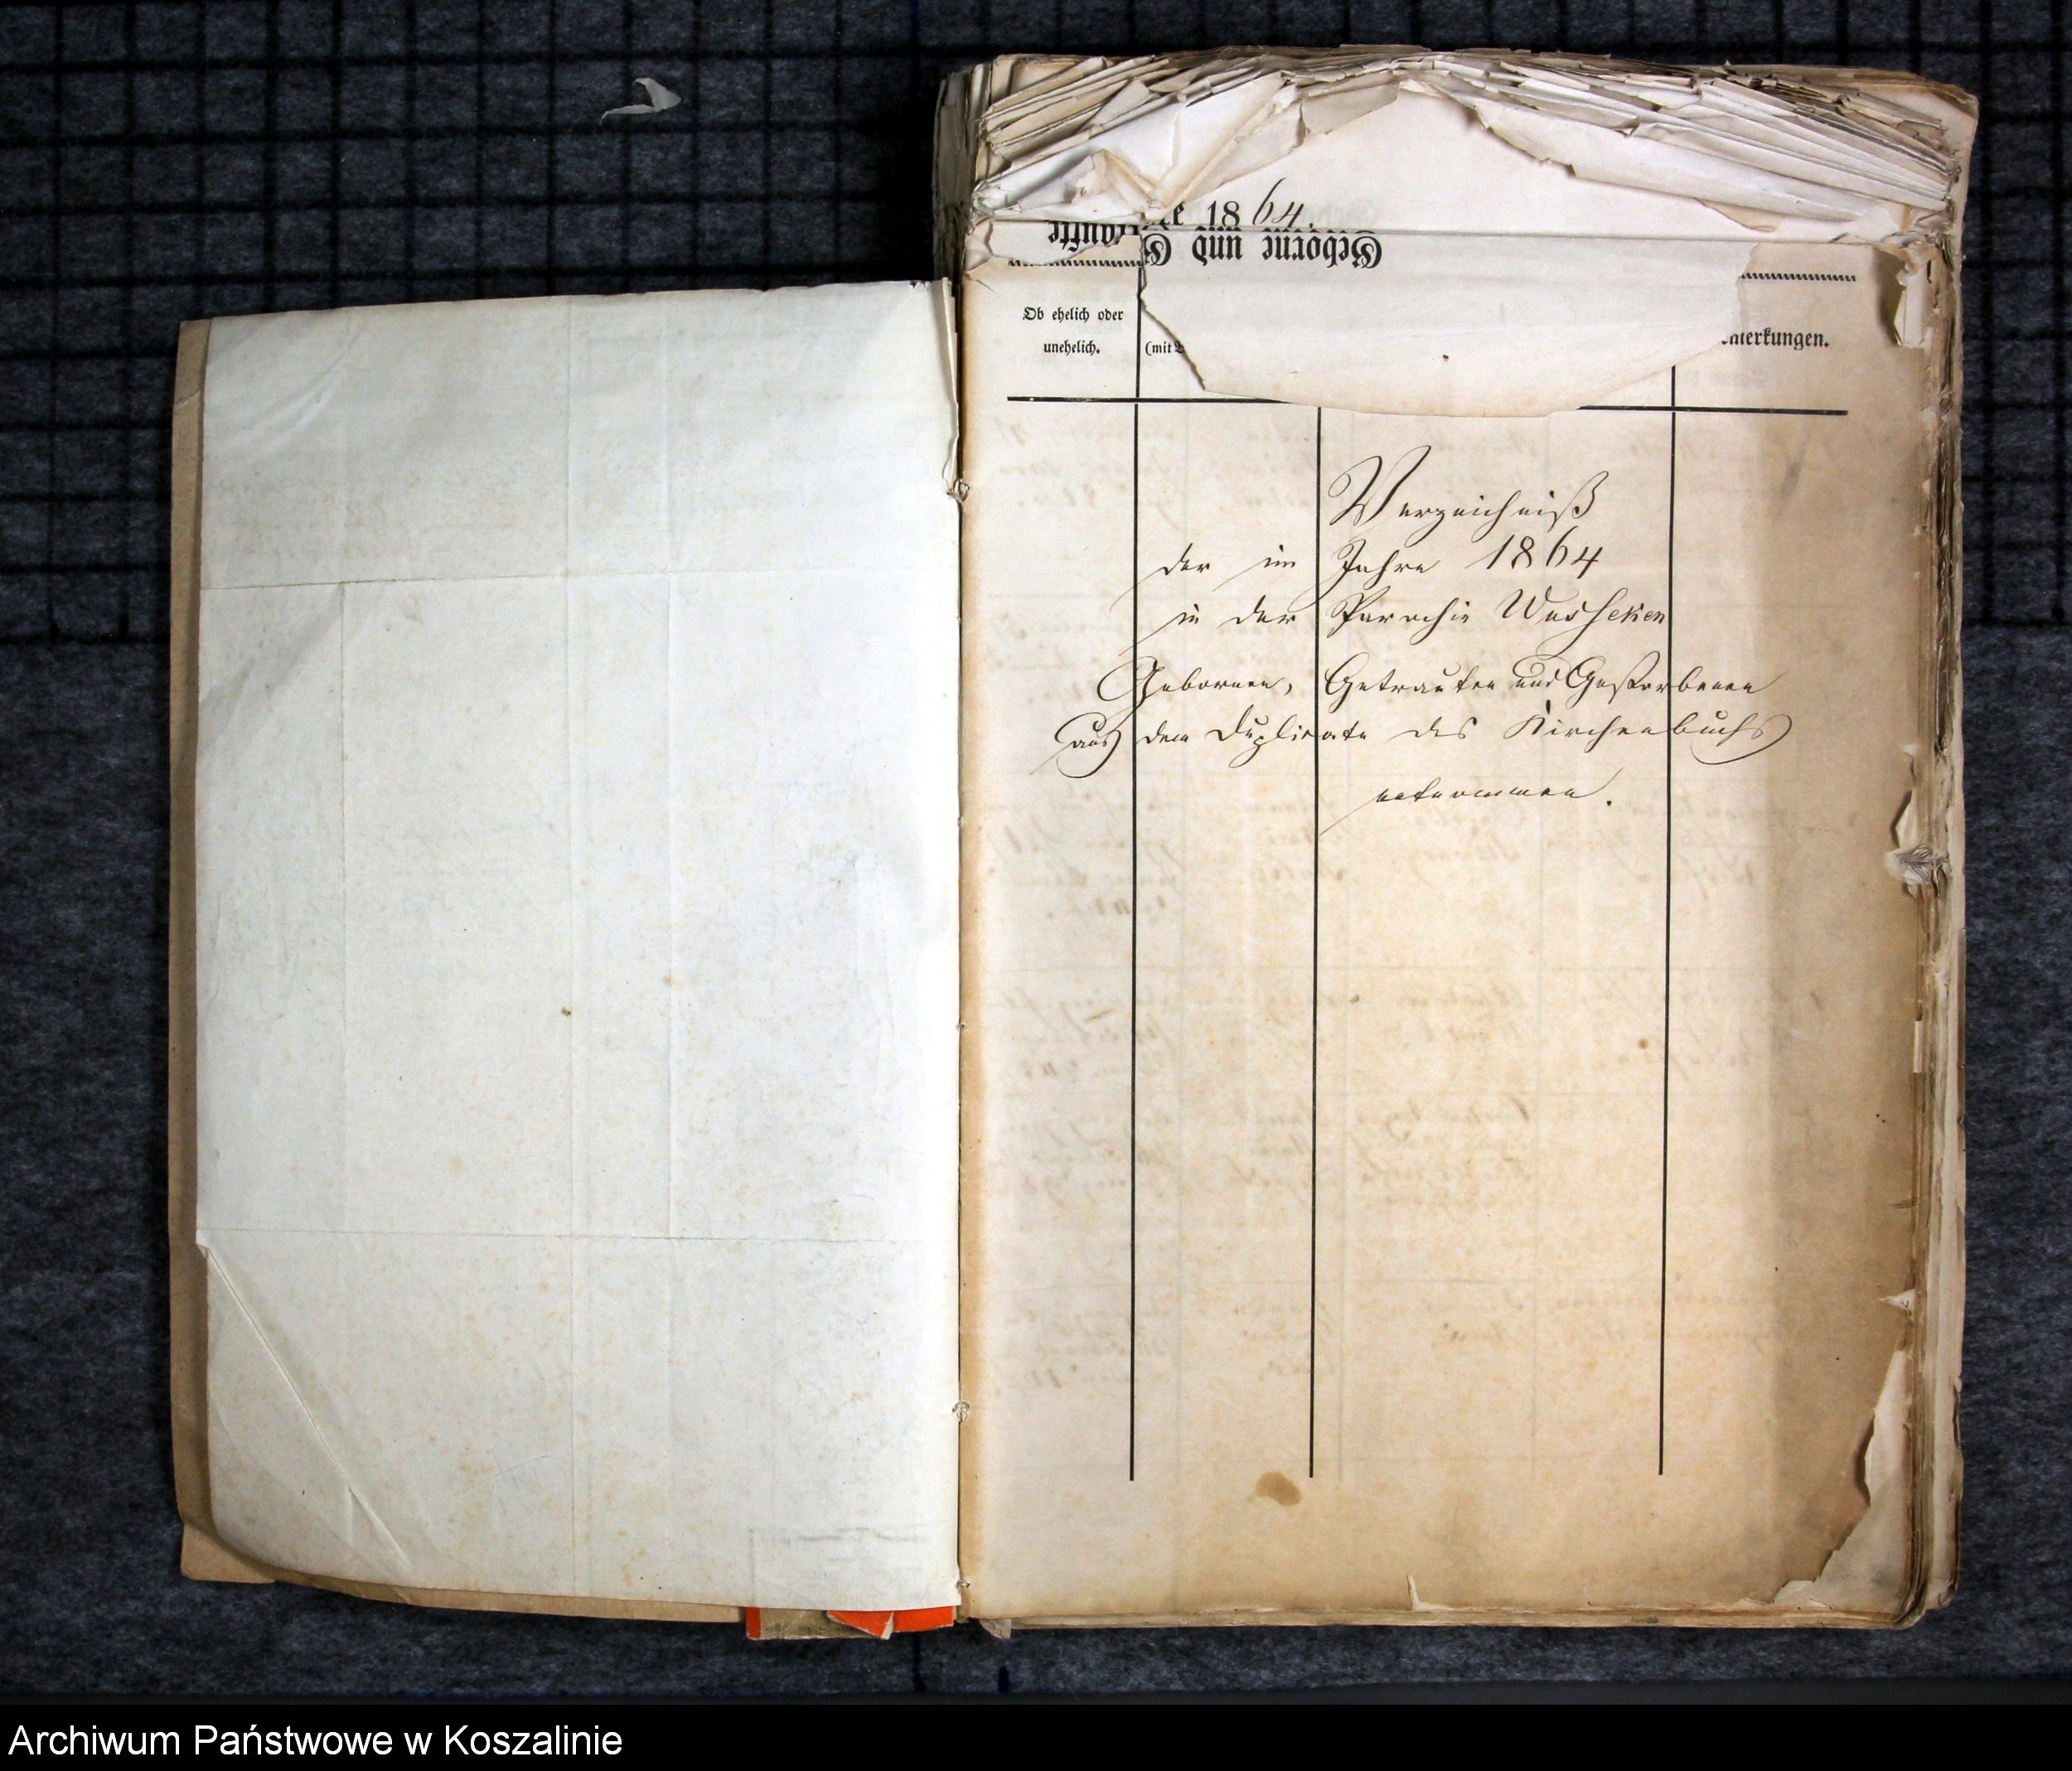 18 64.
Geborne und G
taufte
Ob ehelich oder
unehelich.
(mit
merkungen.
Verzeichniß
der im Jahre 1864
in der Parochie Wusseken
Gebornen, Getrauten und Gestorbenen
aus dem Duplicate des Kirchenbuchs
entnommen.
Archiwum Państwowe w Koszalinie